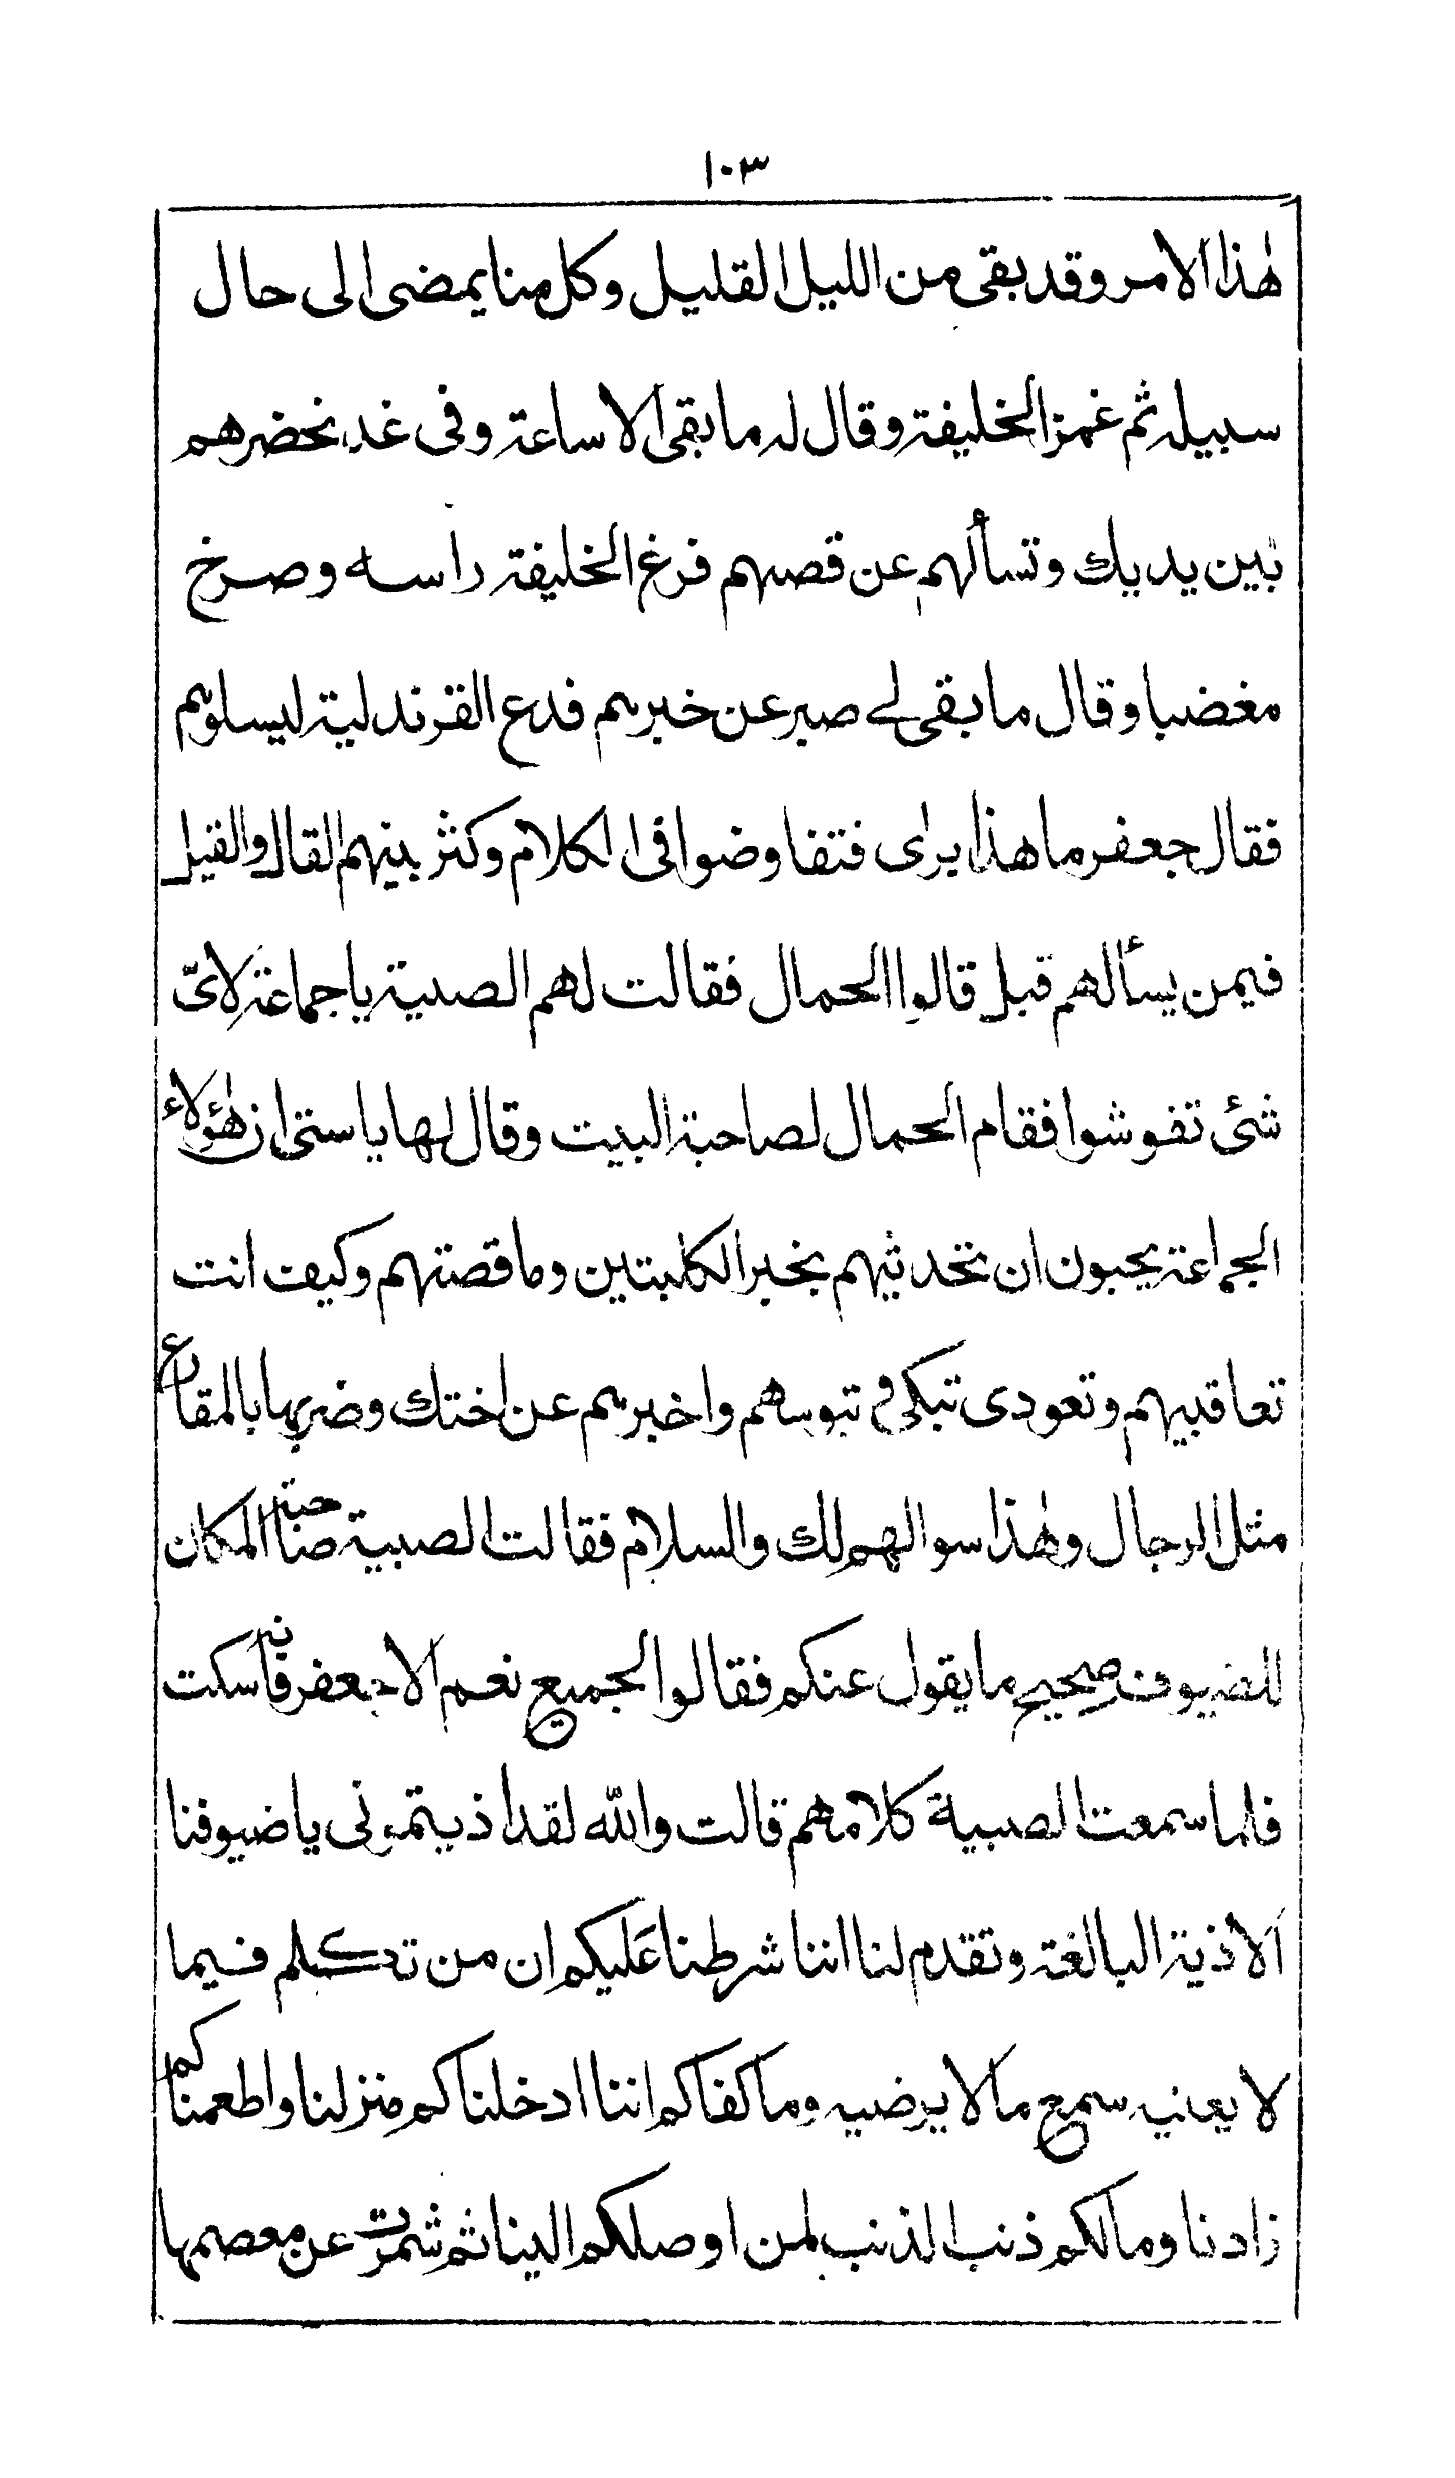 ١٠٣
هٰذا الامر وقد بقى من الليل القليل وكل منا يمضى الى حال
سبيله ثم غمز الخليفة وقال له ما بقى الا ساعة وفى غد نحضرهم
بين يديك وتسألهم عن قصهم فرغ الخليفة راسه وصرخ
مغضبا وقال ما بقى لى صبر عن خبرهم فدع القرندلية ليسلوهم
فقال جعفر ما هذا براى فتفاوضوا فى الكلام وكثر بينهم القال والقيل
فيمن يسألهم قبل قالوا الحمال فقالت لهم الصبية يا جماعة لاىّ
شئ تفوشوا فقام الحمال لصاحبة البيت وقال لها يا ستى ان هٰؤلاء
الجماعة يحبون ان تحدثيهم بخبر الكلبتين وما قصتهم وكيف انت
تعاقبيهم وتعودى تبكى فى تبوسهم واخبرهم عن اختك وضربها بالمقارع
مثل الرجال وهٰذا سوالهم لك والسلام فقالت الصبية صاحبة المكان
للضيوف صحيح ما يقول عنكم فقالوا الجميع نعم الا جعفر فانه سكت
فلما سمعت الصبية كلامهم قالت والله لقد اذيتمونى يا ضيوفنا
الاذية البالغة وتقدم لنا اننا شرطنا عليكم ان من تكلم فيما
لا يعنيه سمع ما لا يرضيه وما كفاكم اننا ادخلناكم منزلنا واطعمناكم
زادنا وما لكم ذنب الذنب لمن اوصلكم الينا ثم شمرت عن معصمها